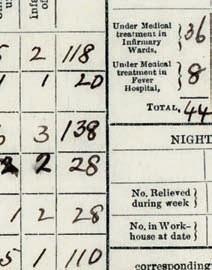 5 2 118
1 1 20
3 138
2 2 28
1 2 28
5 1 110
Under Medical
treatment in
Infirmary
Wards,
36
Under Medical
treatment in
Fever
Hospital,
8
TOTAL, 44
NIGHT
No. Relieved
during week
No. in Work-
house at date
corresponding